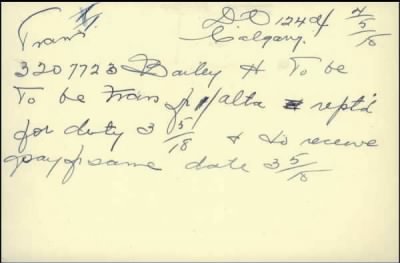 Trans DO 124 of 4/5/18
Calgary.
3207723 Bailey H To be
To be Trans fr 1/alta reptd
for duty 3 5/18 & to receive
pay fr same date 3 5/18